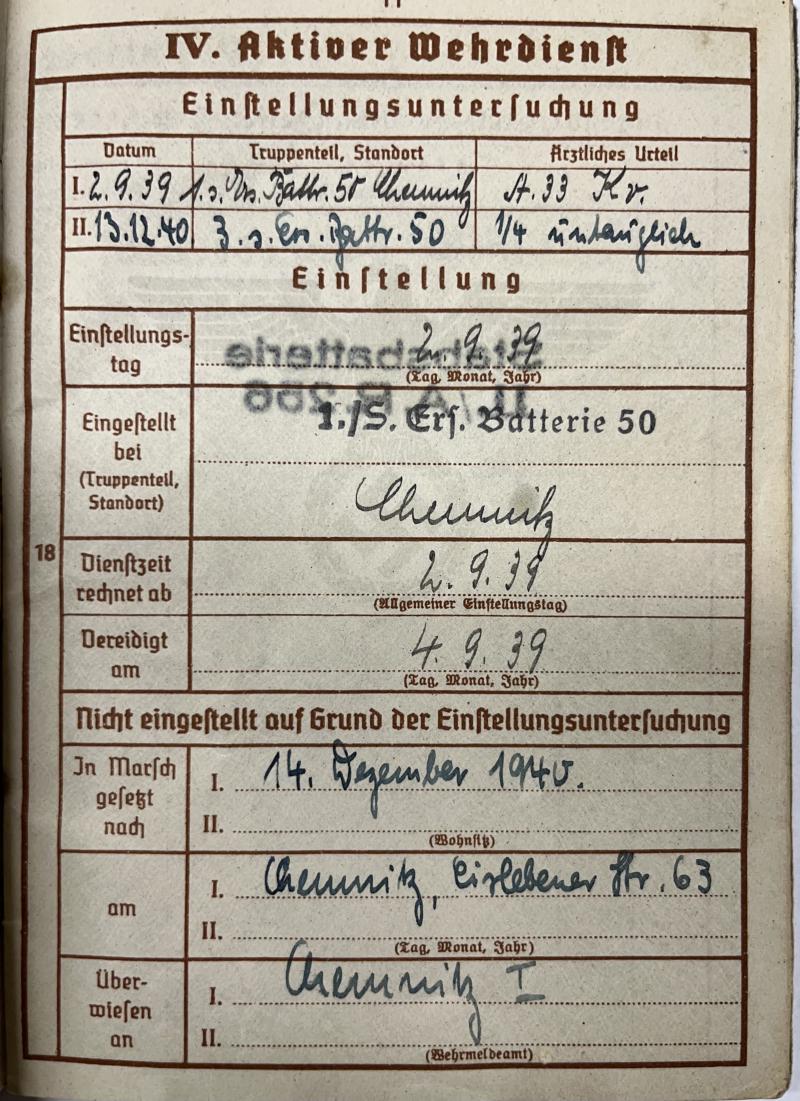 IV. Aktiver Wehrdienst
Einstellungsuntersuchung
Datum Truppenteil, Standort Ärztliches Urteil
I. 2.9.39 1. s. Ers. Battr. 50 Chemnitz A. 33 Kv.
II. 13.12.40 3. s. Ers. Battr. 50 1/4 untauglich
Einstellung
Einstellungs-
tag
2. 9. 39
(Tag, Monat, Jahr)
Stabsbatterie
II./A.R. 256
Eingestellt
bei
(Truppenteil,
Standort)
1./S. Ers. Batterie 50
Chemnitz
18
Dienstzeit
rechnet ab
2. 9. 39
(Allgemeiner Einstellungstag)
Vereidigt
am
4. 9. 39
(Tag, Monat, Jahr)
Nicht eingestellt auf Grund der Einstellungsuntersuchung
In Marsch
gesetzt
nach
I. 14. Dezember 1940.
II.
(Wohnsitz)
am
I. Chemnitz, Eislebener Str. 63
II.
(Tag, Monat, Jahr)
Über-
wiesen
an
I. Chemnitz I
II.
(Wehrmeldeamt)